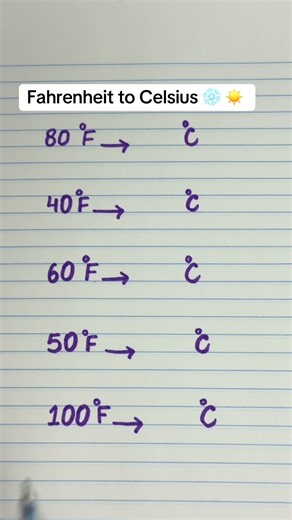 Fahrenheit to Celsius ❄️ ☀️
80°F → °C
40°F → °C
60°F → °C
50°F → °C
100°F → °C